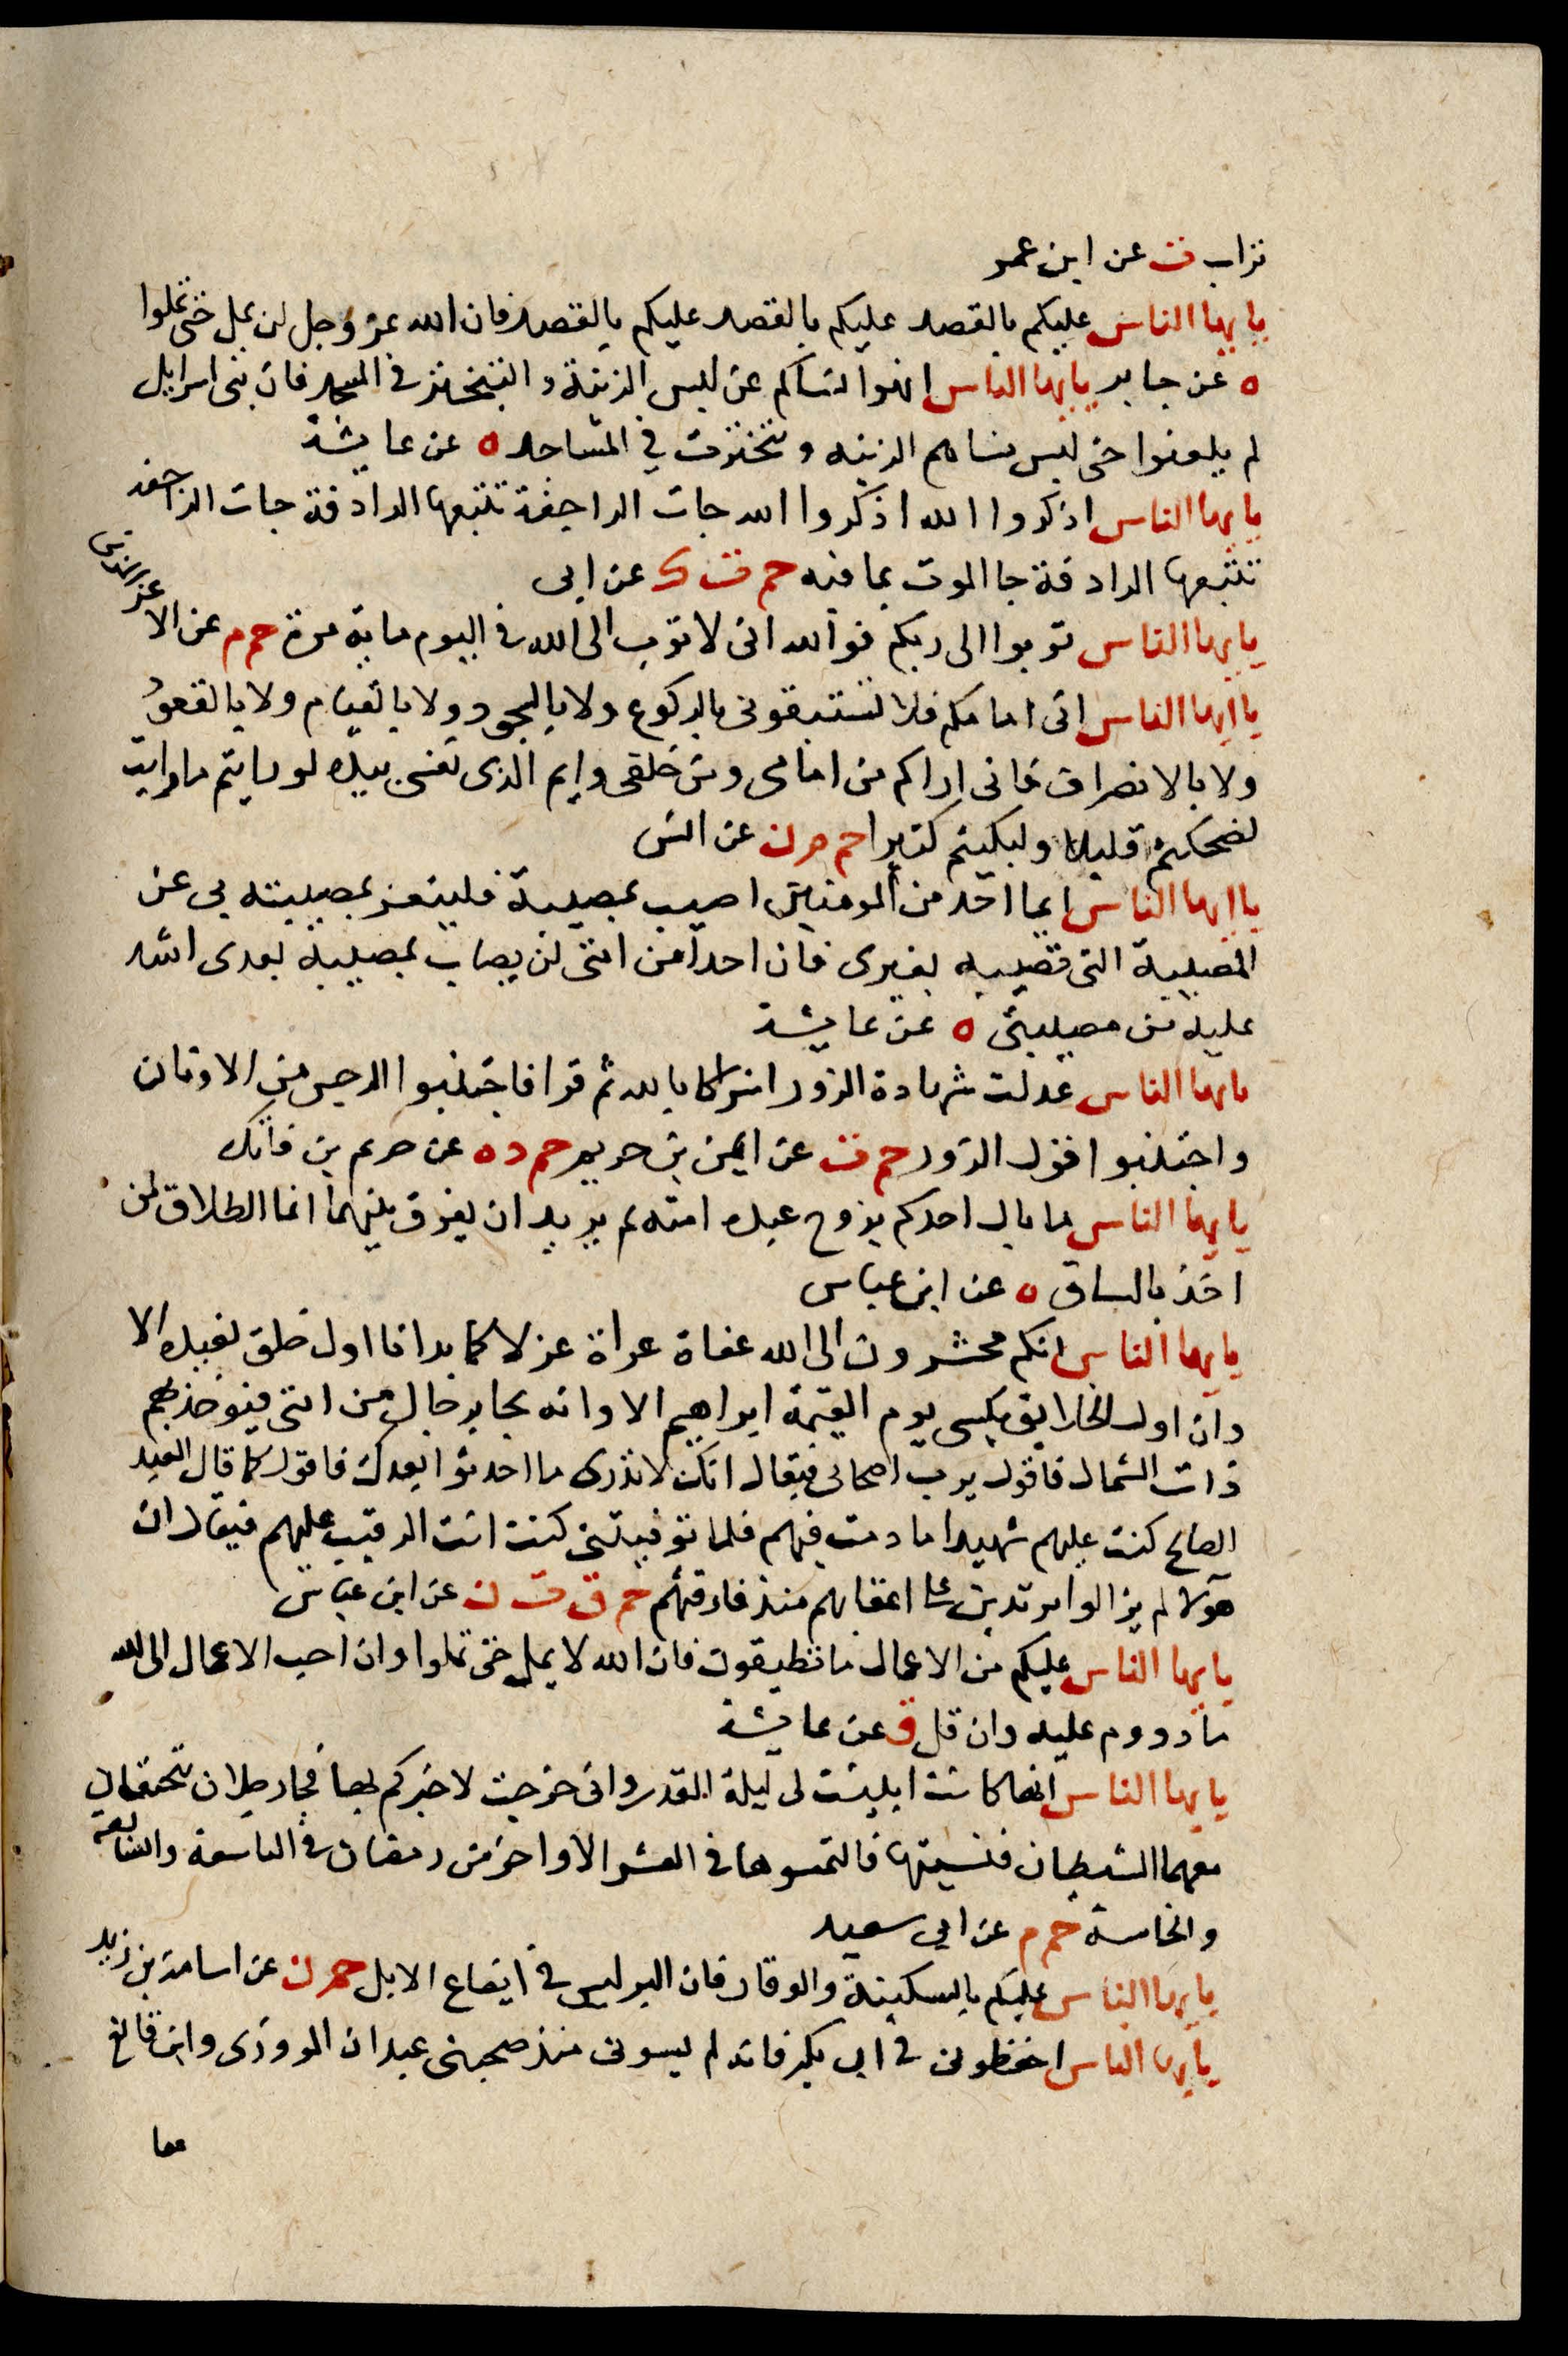 تراب ت عن ابن عمر
يايها الناس عليكم بالقصد عليكم بالقصد عليكم بالقصد فان الله عز وجل لن يمل حتى تملوا
ه عن جابر يايها الناس انهوا نساكم عن لبس الزينة والتبختر في المسجد فان بني اسرايل
لم يلعنوا حتى لبس نساهم الزينه وتبخترت في المساجد ه عن عايشة
يايها الناس اذكروا الله اذكروا الله جات الراجفة تتبعها الرادفة جات الراجفه
تتبعها الرادفة جا الموت بما فيه حم ت ك عن ابي
يايها الناس توبوا الى ربكم فوالله اني لاتوب الى الله في اليوم ماية مرة حم م عن الاغر المزني
يا ايها الناس اني امامكم فلا تستبقوني بالركوع ولا بالسجود ولا بالقيام ولا بالقعود
ولا بالانصراف فاني اراكم من امامي ومن خلفي وايم الذي نفسي بيده لو رايتم ما رايت
لضحكتم قليلا ولبكيتم كثيرا حم م ن عن انس
يا ايها الناس ايما احد من المومنين اصيب بمصيبة فليتعز بمصيبته بي عن
المصيبة التي تصيبه بغيري فان احدا من امتي لن يصاب بمصيبة بعدي اشد
عليه من مصيبتي ه عن عايشة
يايها الناس عدلت شهادة الزور اشراكا بالله ثم قرا فاجتنبوا الرجس من الاوثان
واجتنبوا قول الزور حم ت عن ايمن بن خريم حم د ه عن خريم بن فاتك
يايها الناس ما بال احدكم يزوج عبده امته ثم يريد ان يفرق بينهما انما الطلاق لمن
اخذ بالساق ه عن ابن عباس
يايها الناس انكم محشرون الى الله عفاة عراة غزلا كما بدانا اول خلق نعيده الا
وان اول الخلايق يكسى يوم القيمة ابراهيم الا وانه يجا برجال من امتي فيوخذ بهم
ذات الشمال فاقول يرب اصحابي فيقال انك لا تدري ما احدثوا بعدك فاقول كما قال العبد
الصالح كنت عليهم شهيدا ما دمت فيهم فلما توفيتني كنت انت الرقيب عليهم فيقال ان
هولا لم يزالوا مرتدين على اعقابهم منذ فارقتهم حم ق ت ن عن ابن عباس
يايها الناس عليكم من الاعمال ما تطيقون فان الله لا يمل حتى تملوا وان احب الاعمال الى الله
ما دووم عليه وان قل ق عن عايشة
يايها الناس انها كانت ابينت لي ليلة القدر واني خرجت لاخبركم بها فجا رجلان يحتقان
معهما الشيطان فنسيتها فالتمسوها في العشر الاواخر من رمضان في التاسعة والسابعة
والخامسة حم م عن ابي سعيد
يايها الناس عليكم بالسكينة والوقار فان البر ليس في ايضاع الابل حم ن عن اسامة بن زيد
يايها الناس احفظوني في ابي بكر فانه لم يسوني منذ صحبني عبدان المروزي وابن قانع
معا